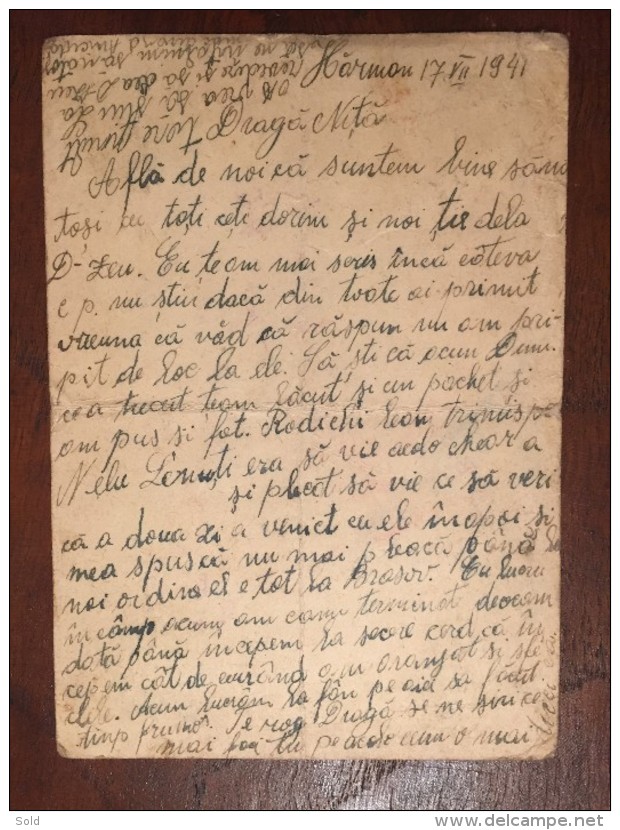 Hărman 17.VII 1941
Dragă Niță
Află de noi că suntem bine sănă
toși cu toți cețe dorim și noi ție dela
D-zeu. Eu team mai scris încă câteva
c p. nu știu dacă din toate ai primit
vreuna că văd că răspun nu am pri-
pit de loc la ele. Să sti că acum Dumi.
ca trecut team făcut și un pachet și
am pus și fot. Rodichii leam trimis pe
Nelu Lenuți era să vie acdo chear a
și plecat să vie ce să veri
că a doua zi a venit cu ele înapoi și
mea spus că nu mai pleacă până la
noi ordine el e tot la Brasov. Eu lucru
în câmp acum am cam terminat deocam
dată până începem la secere cred că în
cepem cât de curând am aranjat și ste
clele. Acum lucrăm la fân pe aici sa făcut
timp frumos. Te rog Dragă se ne scrii ce
mai faci tu pe acolo cum o mai
revedere și să dea
să ne întâlnim sănătoși
Sold